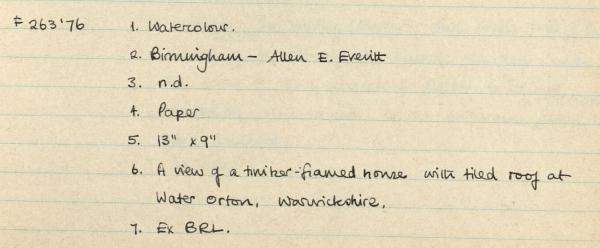 F 263'76 1. Watercolour.
2. Birmingham - Allen E. Everitt
3. n.d.
4. Paper
5. 13" x 9"
6. A view of a timber-framed house with tiled roof at
Water Orton, Warwickshire.
7. Ex BRL.